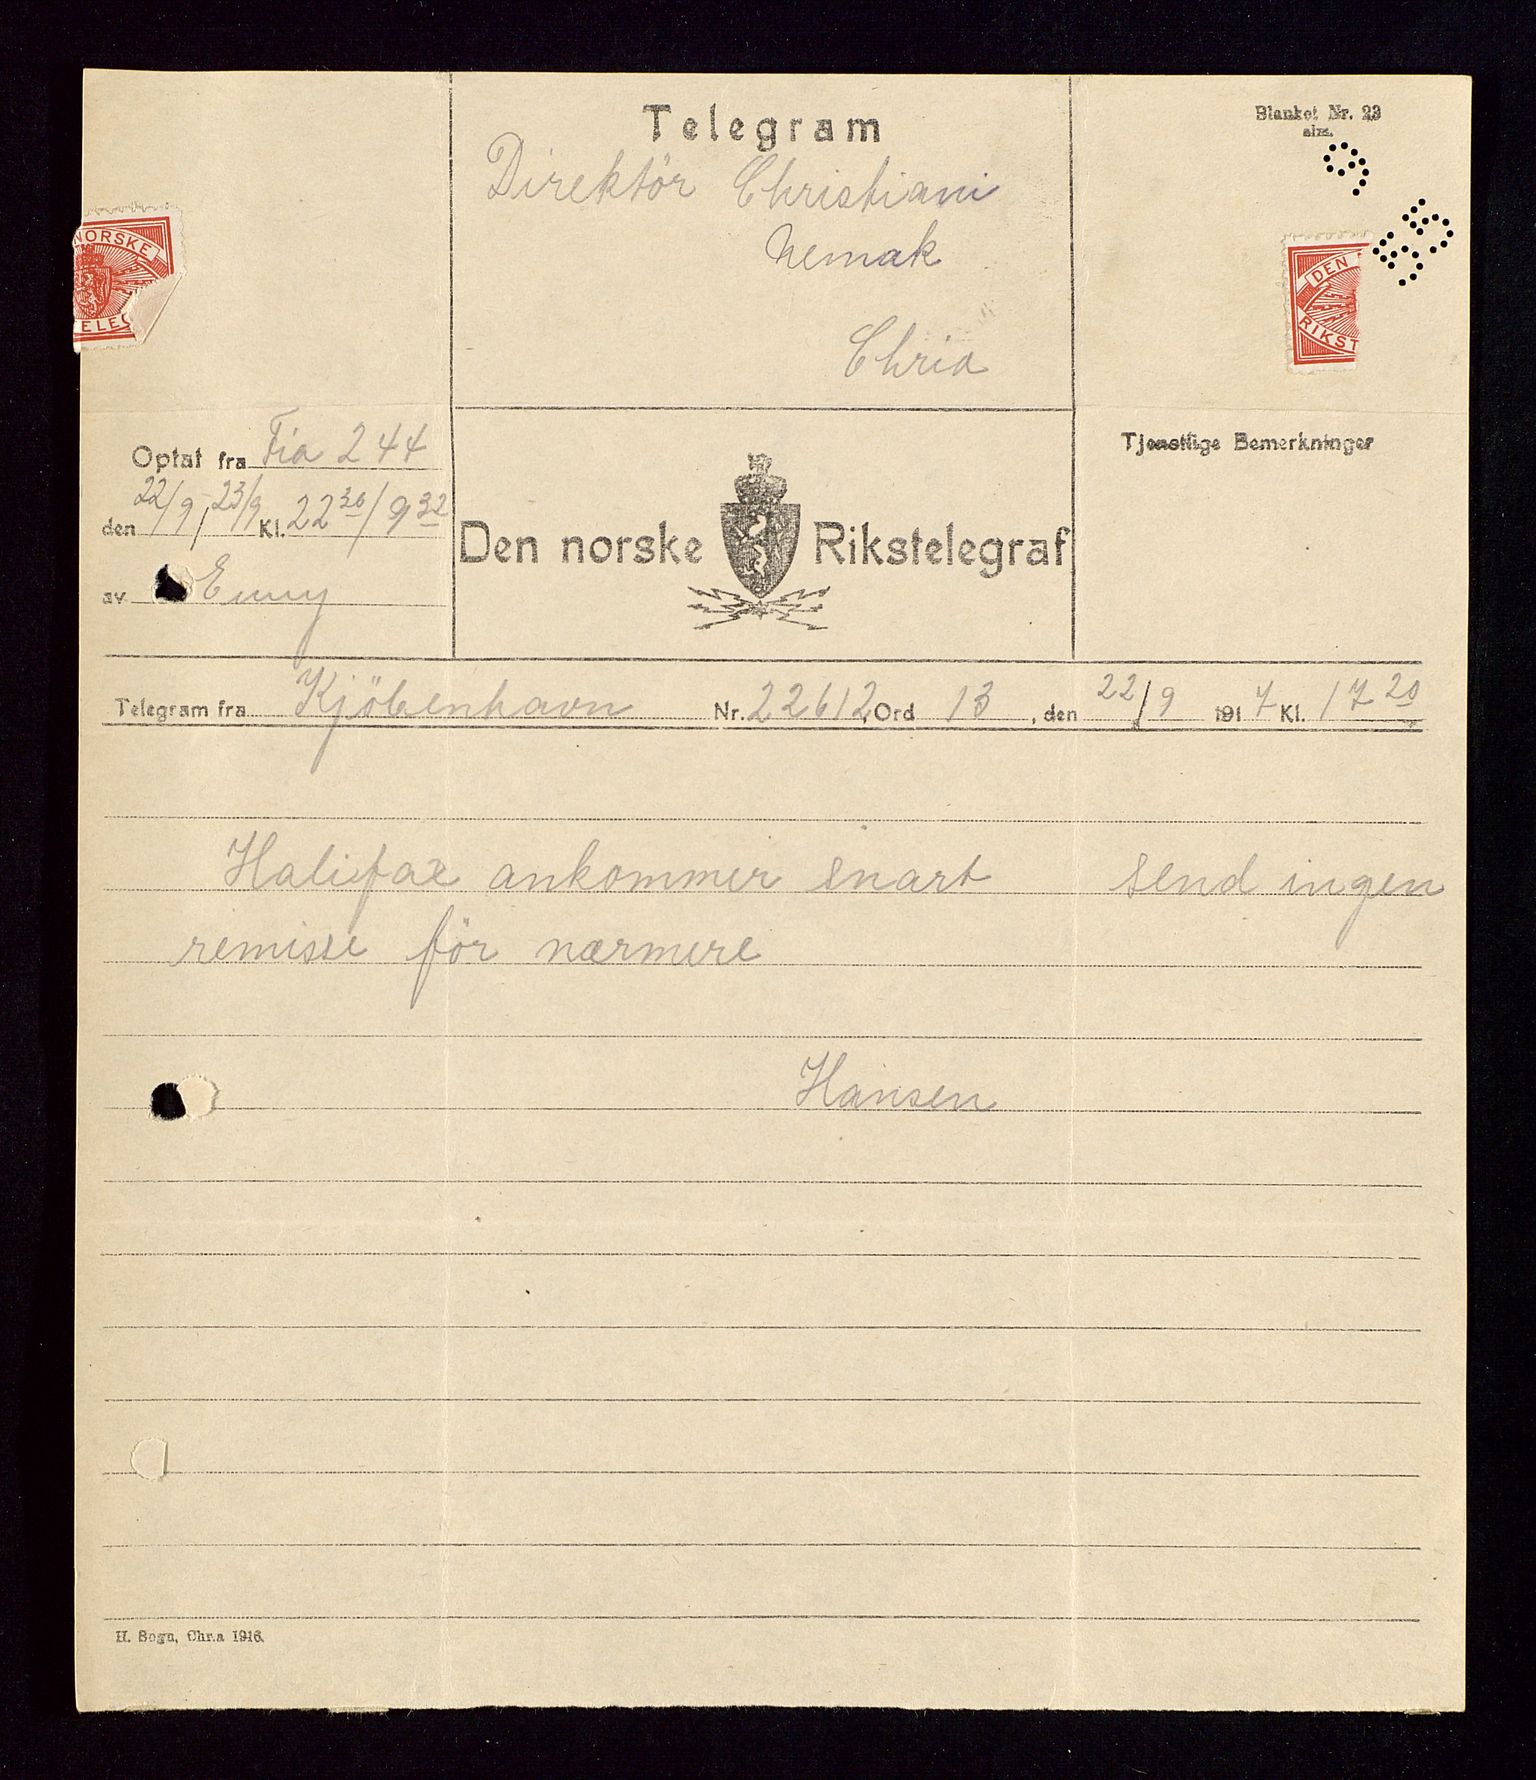 Telegram
Blanket Nr. 23
alm.
Direktör Christiani
Nemak
Chria
NORSKE
TELEG
DEN
RIKST
9
95
Optat fra Fia 244
den 22/9, 23/9 Kl. 22 36 / 9 32
av Enny
Den norske Rikstelegraf
Tjenstlige Bemerkninger
Telegram fra Kjöbenhavn Nr. 22612, Ord 13, den 22/9 1917 Kl. 17 20
Halifax ankommer snart send ingen
remisse för nærmere
Hansen
H. Bogn, Chr.a 1916.